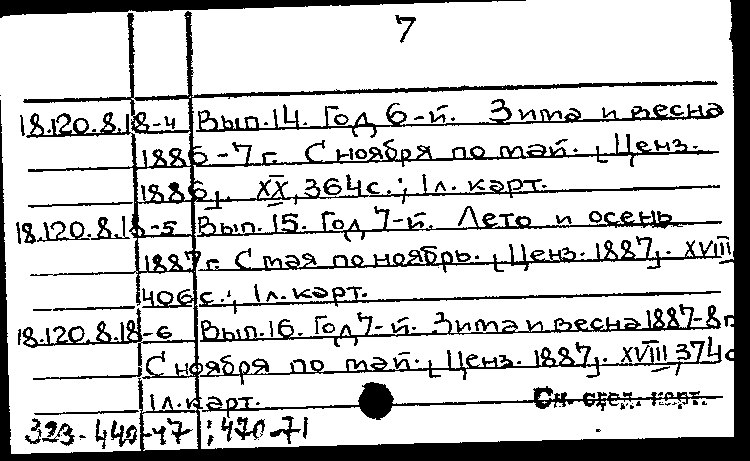 7
18.120.8.18-4 Вып.14. Год 6-й. Зима и весна
1886-7 г. С ноября по май. [Ценз.
1886]. XX, 364 с.; 1 л. карт.
18.120.8.18-5 Вып. 15. Год 7-й. Лето и осень
1887 г. С мая по ноябрь. [Ценз. 1887]. XVIII,
406 с.; 1 л. карт.
18.120.8.18-6 Вып.16. Год 7-й. Зима и весна 1887-8 г.
С ноября по май. [Ценз. 1887]. XVIII, 374 с
1 л. карт. См. след. карт.
323-440-47; 470-71